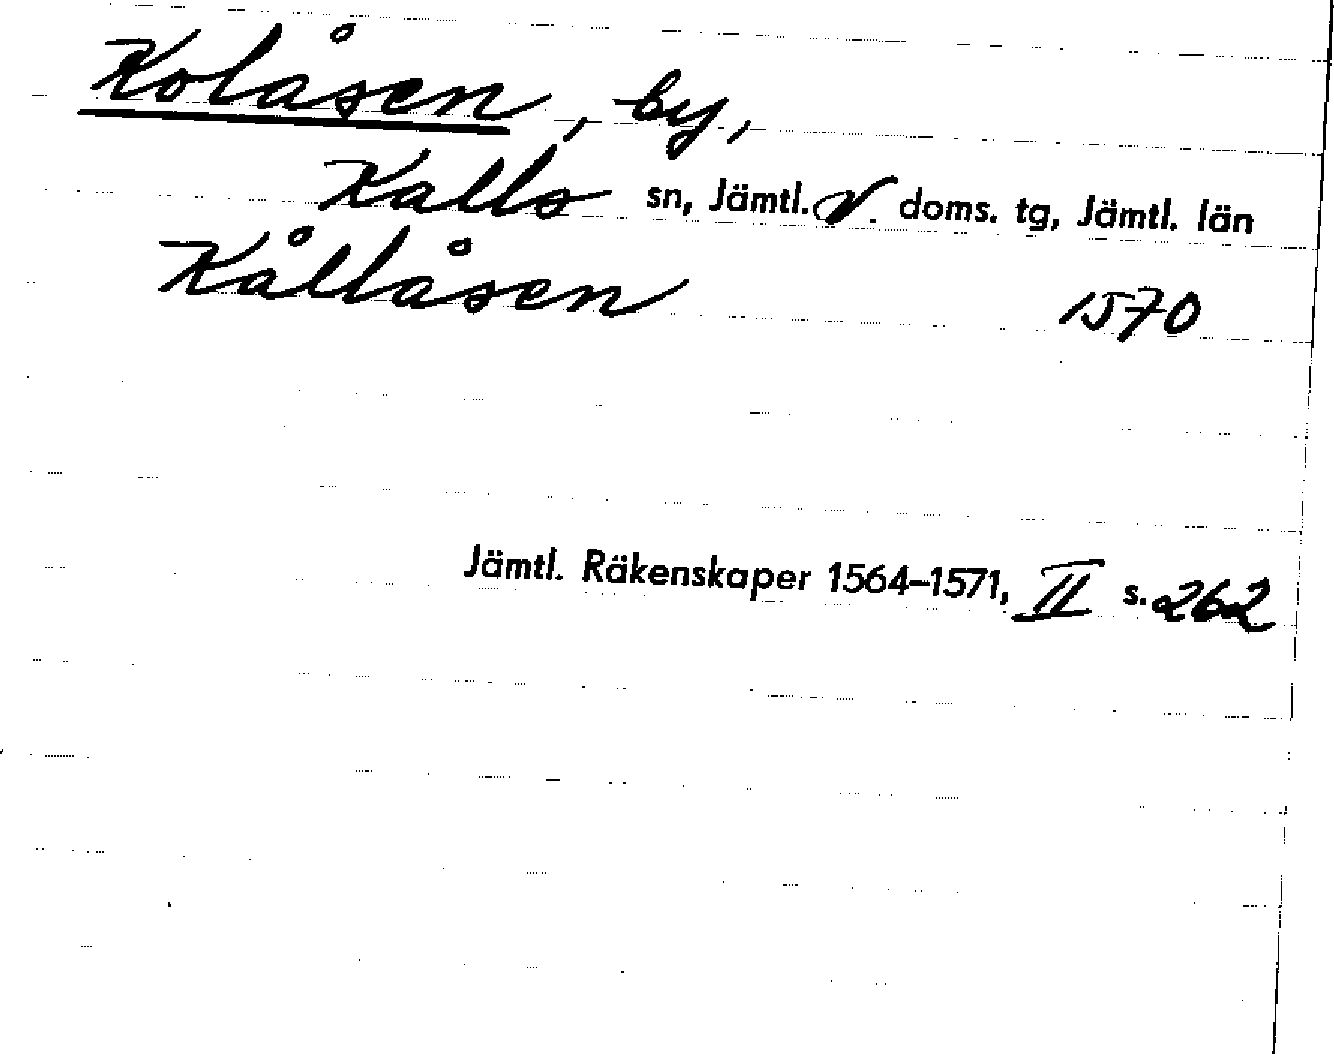 Kolåsen, by,
Kalls sn, Jämtl. V. doms. tg, Jämtl. län
Kållåsen 1570
Jämtl. Räkenskaper 1564–1571, II s. 262